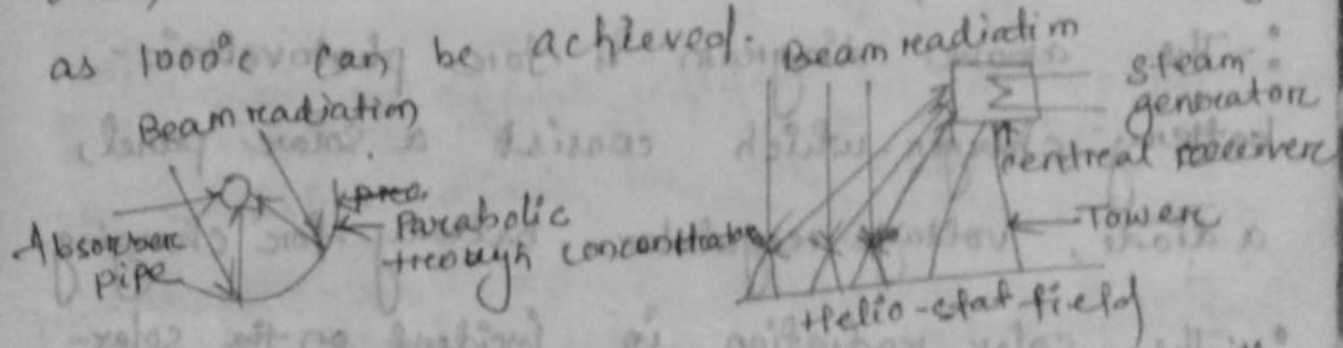 as 1000°c can be achieved.
Beam radiation
Absorber
pipe
Parabolic
through concentrator
Beam readiation
steam
generator
Central receiver
Tower
Helio-stat field